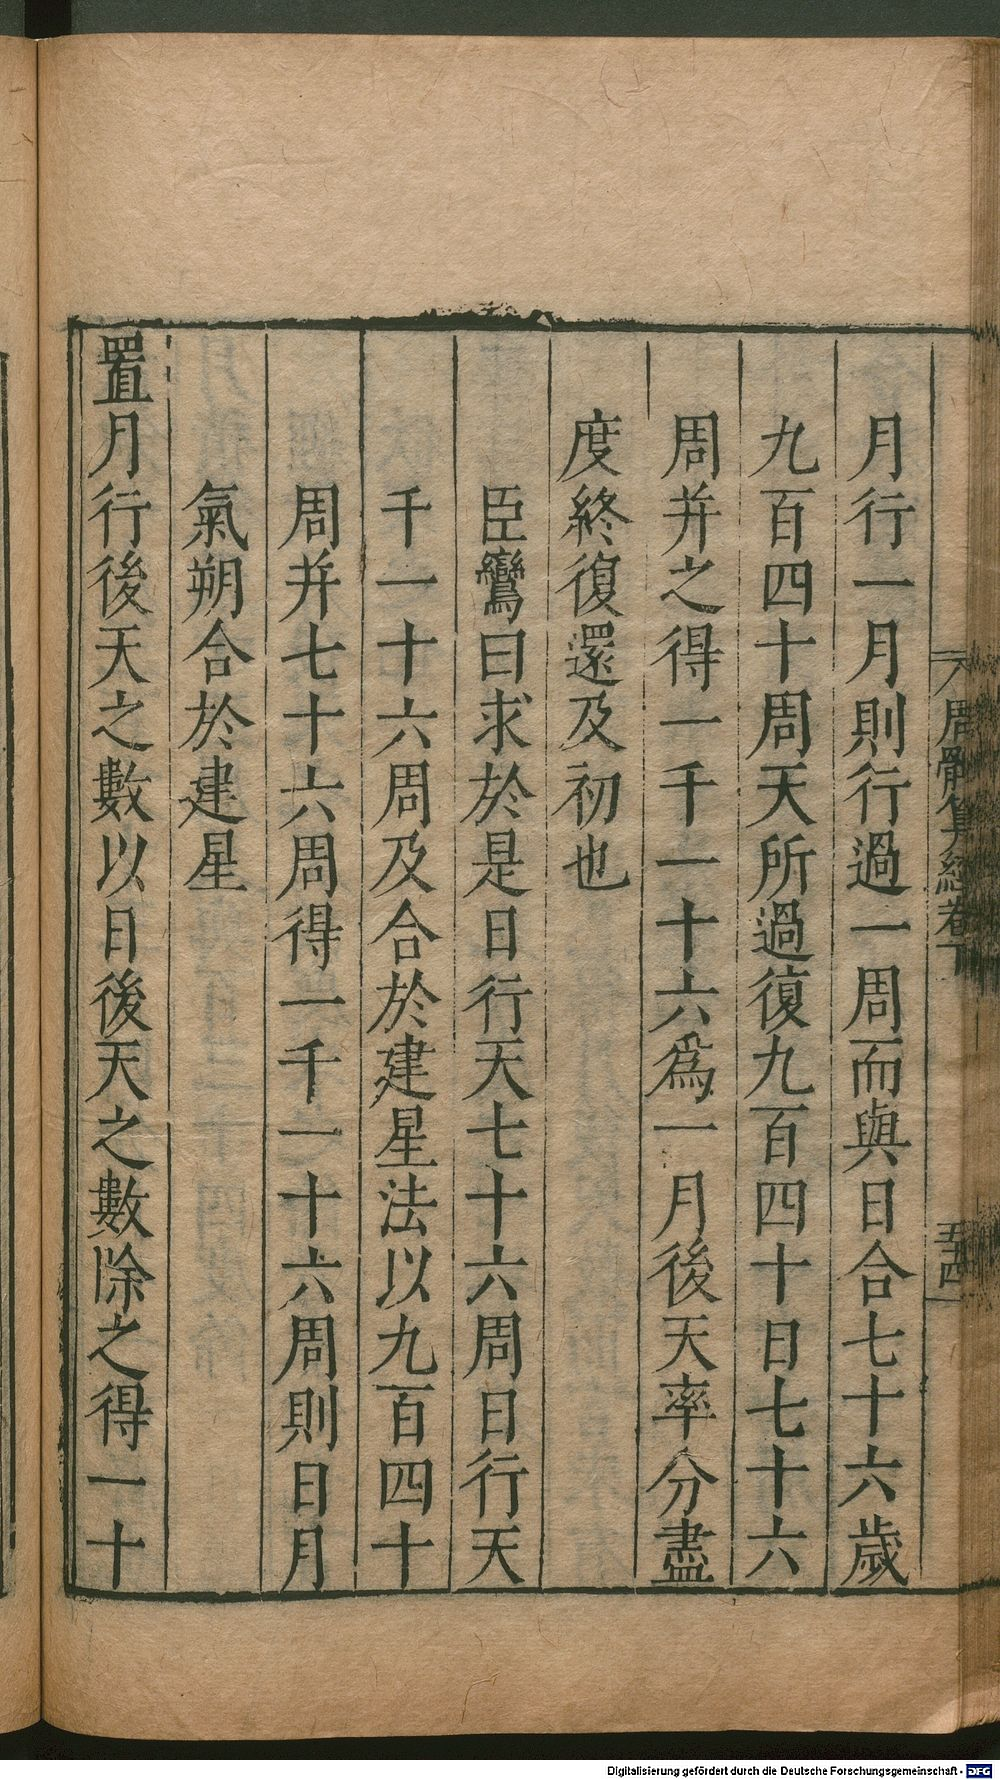 周髀算經卷下
五四
月行一月則行過一周而與日合七十六歲
九百四十周天所過復九百四十日七十六
周并之得一千一十六為一月後天率分盡
度終復還及初也
臣鸞曰求於是日行天七十六周日行天
千一十六周及合於建星法以九百四十
周并七十六周得一千一十六周則日月
氣朔合於建星
置月行後天之數以日後天之數除之得一十
Digitalisierung gefördert durch die Deutsche Forschungsgemeinschaft - DFG